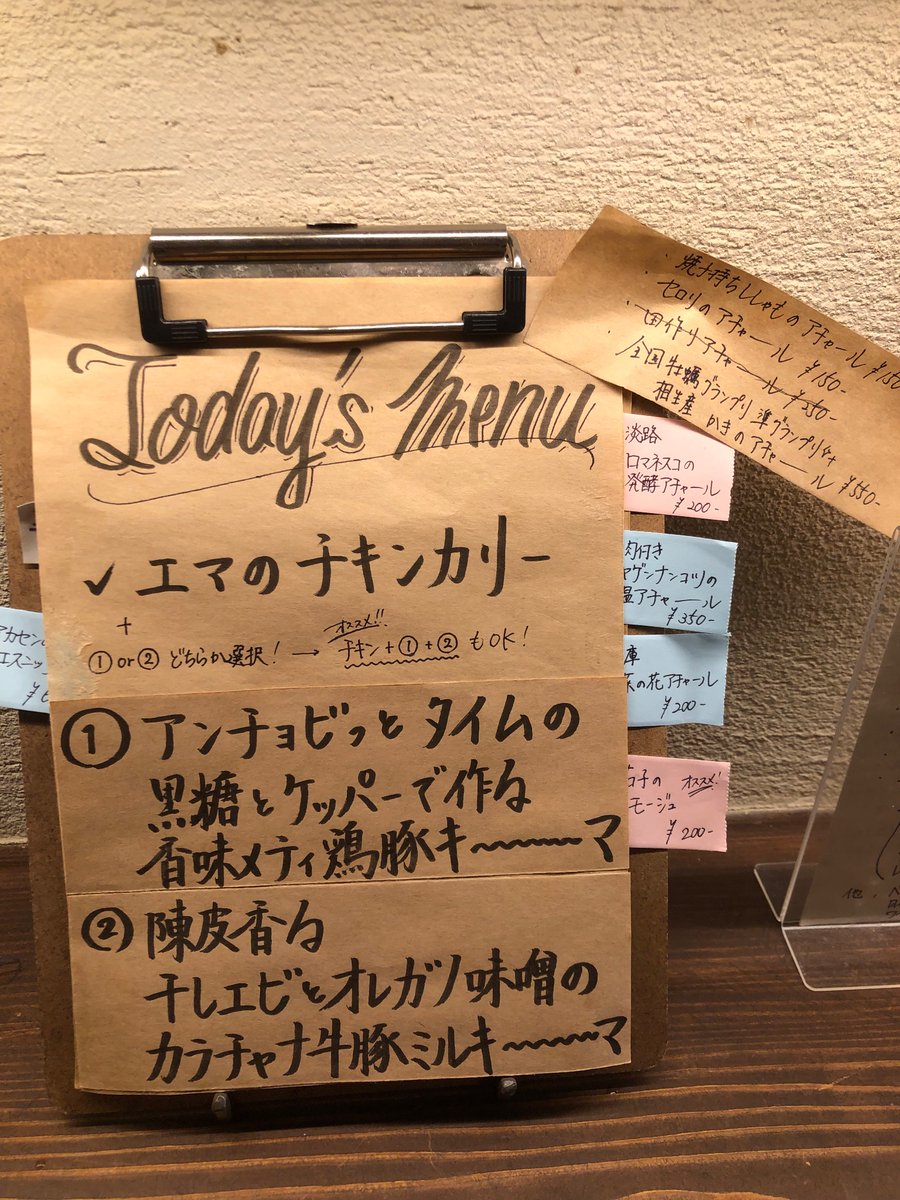 Today's Menu
✓エマのチキンカリー
+
①or② どちらか選択! → チキン+①+②もOK!
オススメ!!
①アンチョビっとタイムの
黒糖とケッパーで作る
香味メティ鶏豚キ〜〜マ
②陳皮香る
干しエビとオレガノ味噌の
カラチャナ牛豚ミルキ〜〜マ
・焼子持ちししゃものアチャール ¥150
セロリのアチャール ¥150-
・田作りアチャール ¥250-
全国牡蠣グランプリ準グランプリ
相生産 かきのアチャール ¥550-
淡路
ロマネスコの
発酵アチャール
¥200-
肉付き
ヤゲンナンコツの
塩アチャール
¥350-
の花アチャール
¥200-
子の オススメ!
モージュ
¥200-
アカセン
エスニッ
¥
他、